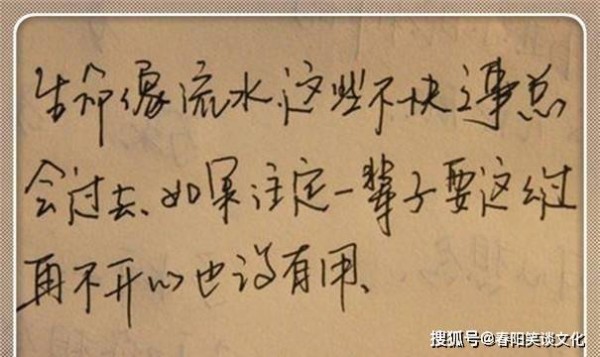 生命像流水,这些不快之事总
会过去、如果注定一辈子要这么过
再不开心也没有用、
搜狐号@春阳笑谈文化